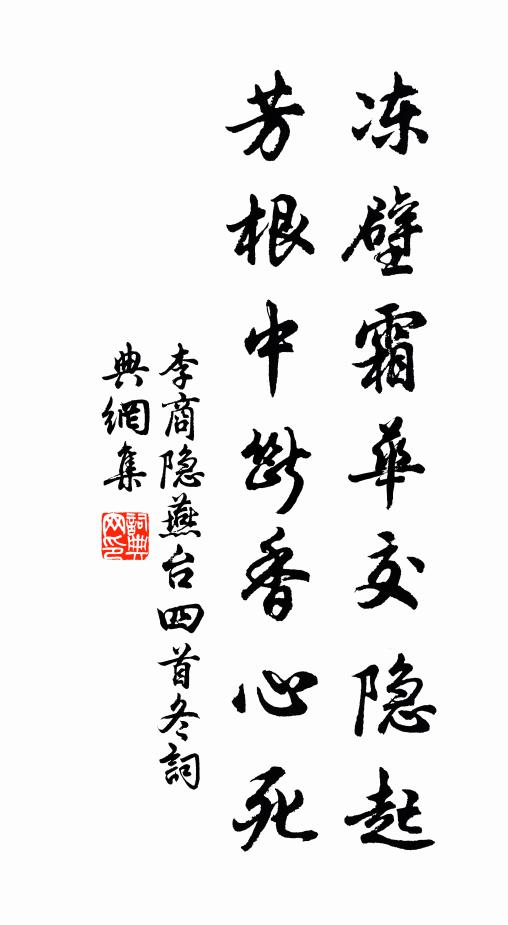 冻壁霜华交隐起
芳根中斷香心死
李商隐燕台四首冬詞
典網集
詞典网印